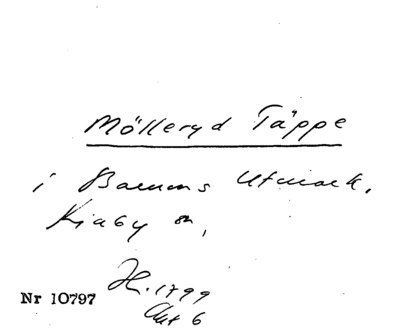 Mölleryd Täppe
i Barums Utmark,
Kiaby sn,
H. 1799
Akt 6
Nr 10797